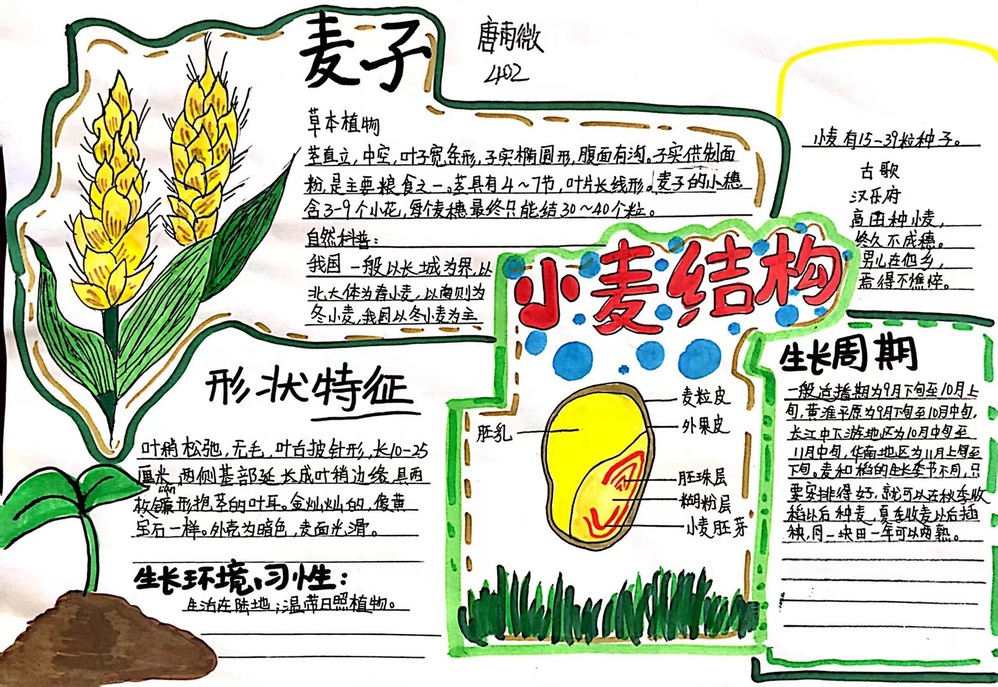 麦子
唐雨微
402
草本植物
茎直立，中空，叶子宽条形，子实椭圆形，腹面有沟。子实供制面
粉，是主要粮食之一。茎具有4～7节，叶片长线形。麦子的小穗
含3-9个小花，每个麦穗最终只能结30～40个粒。
自然科普：
我国一般以长城为界，以
北大体为春小麦，以南则为
冬小麦，我国以冬小麦为主
小麦有15-39粒种子。
古歌
汉乐府
高田种小麦，
终久不成穗。
男儿在他乡，
焉得不憔悴。
小麦结构
麦粒皮
外果皮
胚乳
胚珠层
糊粉层
小麦胚芽
形状特征
叶稍松弛，无毛，叶台披针形，长10-25
厘米，两侧基部延长成叶稍边缘，具两
枚镰形抱茎的叶耳。金灿灿的，像黄
宝石一样。外壳为暗色，麦面光滑。
生长环境，习性：
生活在陆地；温带日照植物。
生长周期
一般适播期为9月下旬至10月上
旬，黄淮平原为9月下旬至10月中旬，
长江中下游地区为10月中旬至
11月中旬，华南地区为11月上旬至
下旬。麦和稻的生长季节不同，只
要安排得好，就可以在秋季收
稻以后种麦，夏季收麦以后插
秧，同一块田一年可以两熟。